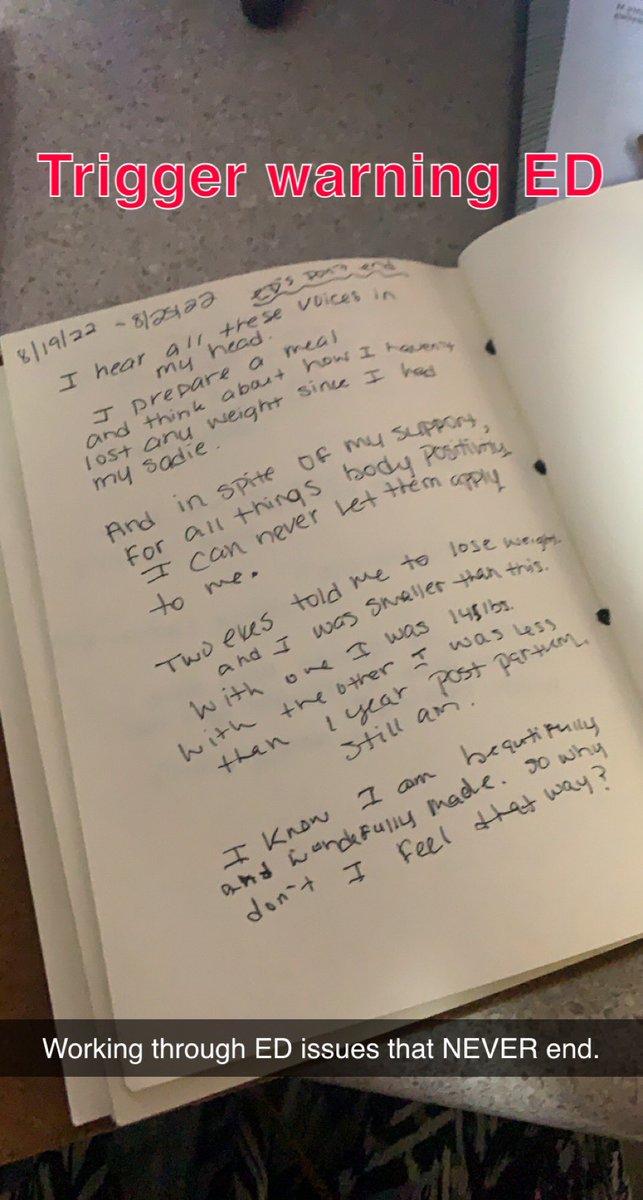 Trigger warning ED
8/19/22 - 8/25/22 ED's don't end
I hear all these voices in
my head.
I prepare a meal
and think about how I haven't
lost any weight since I had
my Sadie.
And in spite of my support,
for all things body positivity
I can never let them apply
to me.
Two exes told me to lose weight.
and I was smaller than this.
With one I was 145lbs.
With the other I was less
than 1 year post partum.
Still am.
I know I am beautifully
and wonderfully made. so why
don't I feel that way?
Working through ED issues that NEVER end.